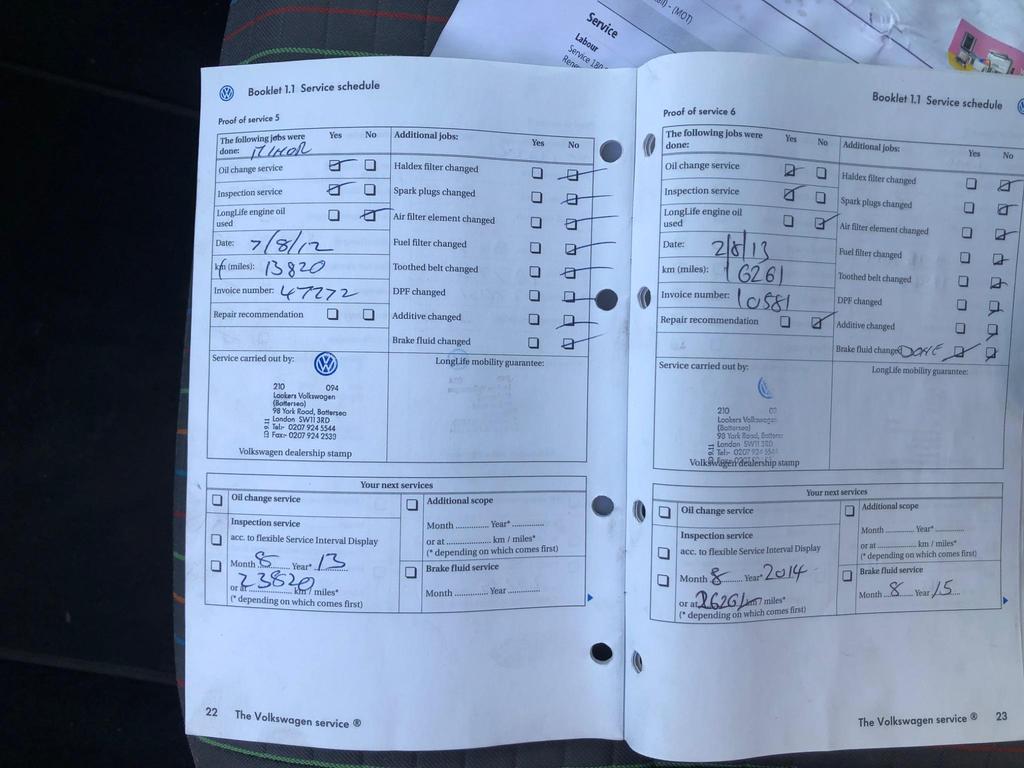 Service
Labour
Booklet 1.1 Service schedule
Proof of service 5
The following jobs were done: MINOR
Yes No
Additional jobs:
Yes No
Oil change service
Haldex filter changed
Inspection service
Spark plugs changed
LongLife engine oil used
Air filter element changed
Date: 7/8/12
Fuel filter changed
km (miles): 13820
Toothed belt changed
Invoice number: 47272
DPF changed
Repair recommendation
Additive changed
Brake fluid changed
Service carried out by:
LongLife mobility guarantee:
210 094
Lookers Volkswagen
(Battersea)
98 York Road, Battersea
London SW11 3RD
Tel:- 0207 924 5544
Fax:- 0207 924 2539
Volkswagen dealership stamp
Your next services
Oil change service
Additional scope
Inspection service
Month Year*
acc. to flexible Service Interval Display
or at km / miles*
(* depending on which comes first)
Month 8 Year* 13
Brake fluid service
or at 23820 km / miles*
(* depending on which comes first)
Month Year
22 The Volkswagen service ®
Booklet 1.1 Service schedule
Proof of service 6
The following jobs were done:
Yes No
Additional jobs:
Yes No
Oil change service
Haldex filter changed
Inspection service
Spark plugs changed
LongLife engine oil used
Air filter element changed
Date: 2/8/13
Fuel filter changed
km (miles): 16261
Toothed belt changed
Invoice number: 10581
DPF changed
Repair recommendation
Additive changed
Brake fluid changed DONE
Service carried out by:
LongLife mobility guarantee:
210
Lookers Volkswagen
(Battersea)
98 York Road,
London SW11 3RD
Tel:- 0207 924
Volkswagen dealership stamp
Your next services
Oil change service
Additional scope
Inspection service
Month Year*
acc. to flexible Service Interval Display
or at km / miles*
(* depending on which comes first)
Month 8 Year* 2014
Brake fluid service
or at 26261 km / miles*
(* depending on which comes first)
Month 8 Year 15
The Volkswagen service ® 23